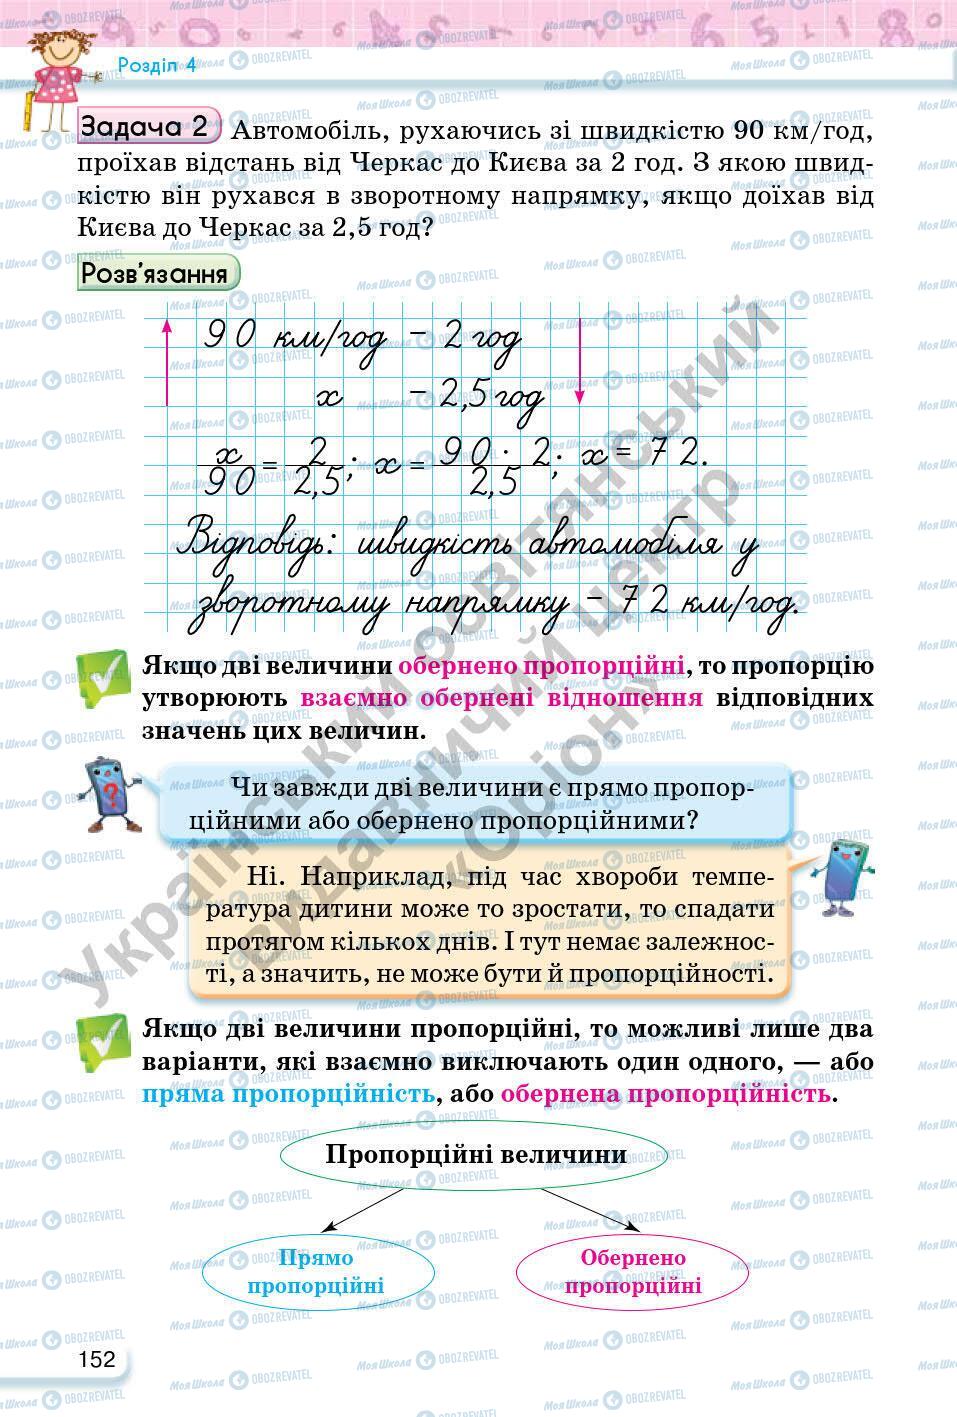 Розділ 4
Задача 2 Автомобіль, рухаючись зі швидкістю 90 км/год,
проїхав відстань від Черкас до Києва за 2 год. З якою швид-
кістю він рухався в зворотному напрямку, якщо доїхав від
Києва до Черкас за 2,5 год?
Розв’язання
90 км/год – 2 год
х – 2,5 год
х/90 = 2/2,5; х = 90 · 2/2,5; х = 72.
Відповідь: швидкість автомобіля у
зворотному напрямку – 72 км/год.
Якщо дві величини обернено пропорційні, то пропорцію
утворюють взаємно обернені відношення відповідних
значень цих величин.
?
Чи завжди дві величини є прямо пропор-
ційними або обернено пропорційними?
Ні. Наприклад, під час хвороби темпе-
ратура дитини може то зростати, то спадати
протягом кількох днів. І тут немає залежнос-
ті, а значить, не може бути й пропорційності.
Якщо дві величини пропорційні, то можливі лише два
варіанти, які взаємно виключають один одного, — або
пряма пропорційність, або обернена пропорційність.
Пропорційні величини
Прямо
пропорційні
Обернено
пропорційні
152
Український освітянський
видавничий центр
«Оріон»
МояШкола OBOZREVATEL